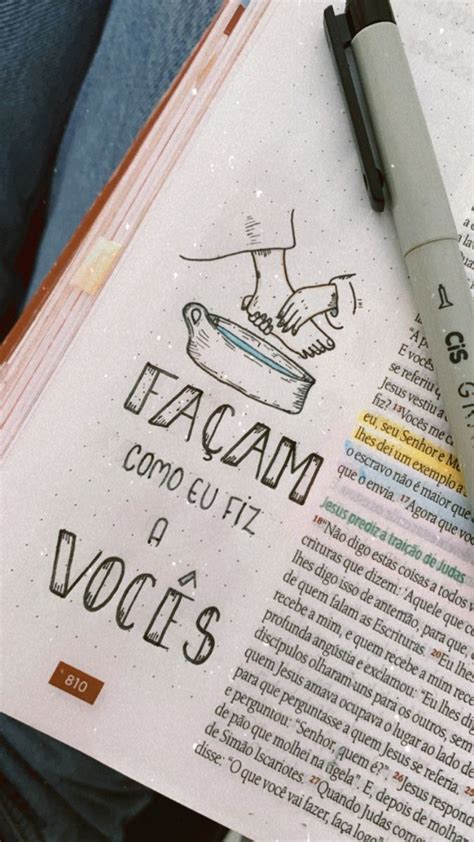 FAÇAM
COMO EU FIZ
A
VOCÊS
810
CiS
E você
se referiu
Jesus vestiu a
fiz? ¹³"Vocês me
eu, seu Senhor e
lhes dei um exemplo a
o escravo não é maior que
que o envia. ¹⁷Agora que
Jesus prediz a traição de Judas
¹⁸"Não digo estas coisas a todos
crituras que dizem: 'Aquele que
lhes digo isso de antemão, para que
de quem falam as Escrituras. ²⁰Eu lh
recebe a mim, e quem recebe a mim rece
profunda angústia e exclamou: "Eu lhes
discípulos olharam uns para os outros, sem
quem Jesus amava ocupava o lugar ao lado de
para que perguntasse a quem Jesus se referia.
e perguntou: "Senhor, quem é?" ²⁶ Jesus respon
de pão que molhei na tigela". E, depois de molhar
de Simão Iscariotes. ²⁷Quando Judas come
disse: "O que você vai fazer, faça logo"